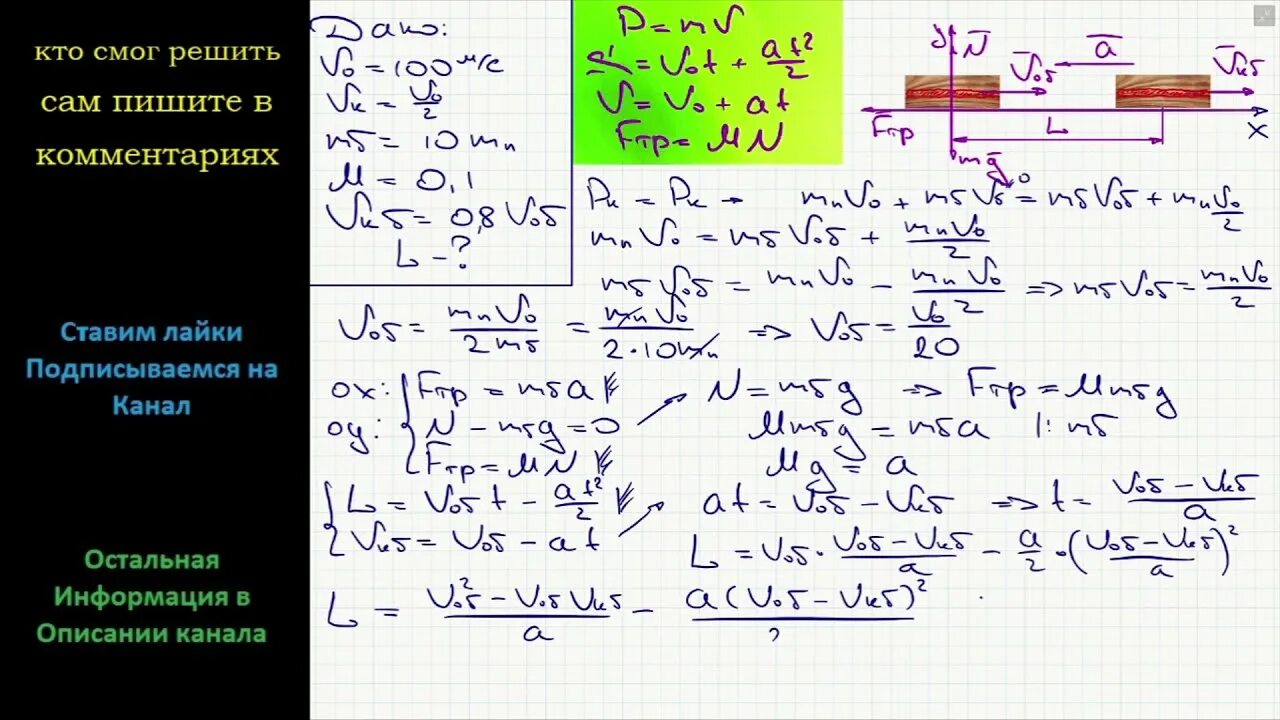 кто смог решить
сам пишите в
комментариях
Ставим лайки
Подписываемся на
Канал
Остальная
Информация в
Описании канала
Дано:
V₀ = 100 м/с
Vк = V₀/2
mб = 10 mп
μ = 0,1
Vкб = 0,8 V₀б
L - ?
P = mV
S = V₀t + at²/2
V = V₀ + at
Fтр = μN
y N V₀б a Vкб
Fтр L x
mg
Pк = Pк → mпV₀ + mбVб⁰ = mбV₀б + mп V₀/2
mпV₀ = mбV₀б + mпV₀/2
mбV₀б = mпV₀ - mпV₀/2 => mбV₀б = mпV₀/2
V₀б = mпV₀/2mб = mпV₀/2·10mп => V₀б = V₀/20
ox: { Fтр = mбa
oy: { N - mбg = 0
Fтр = μN
N = mбg => Fтр = μmбg
μmбg = mбa |: mб
μg = a
{ L = V₀бt - at²/2
Vкб = V₀б - at
at = V₀б - Vкб => t = (V₀б - Vкб)/a
L = V₀б · (V₀б - Vкб)/a - a/2 · ((V₀б - Vкб)/a)²
L = (V₀б² - V₀бVкб)/a - a(V₀б - Vкб)²/